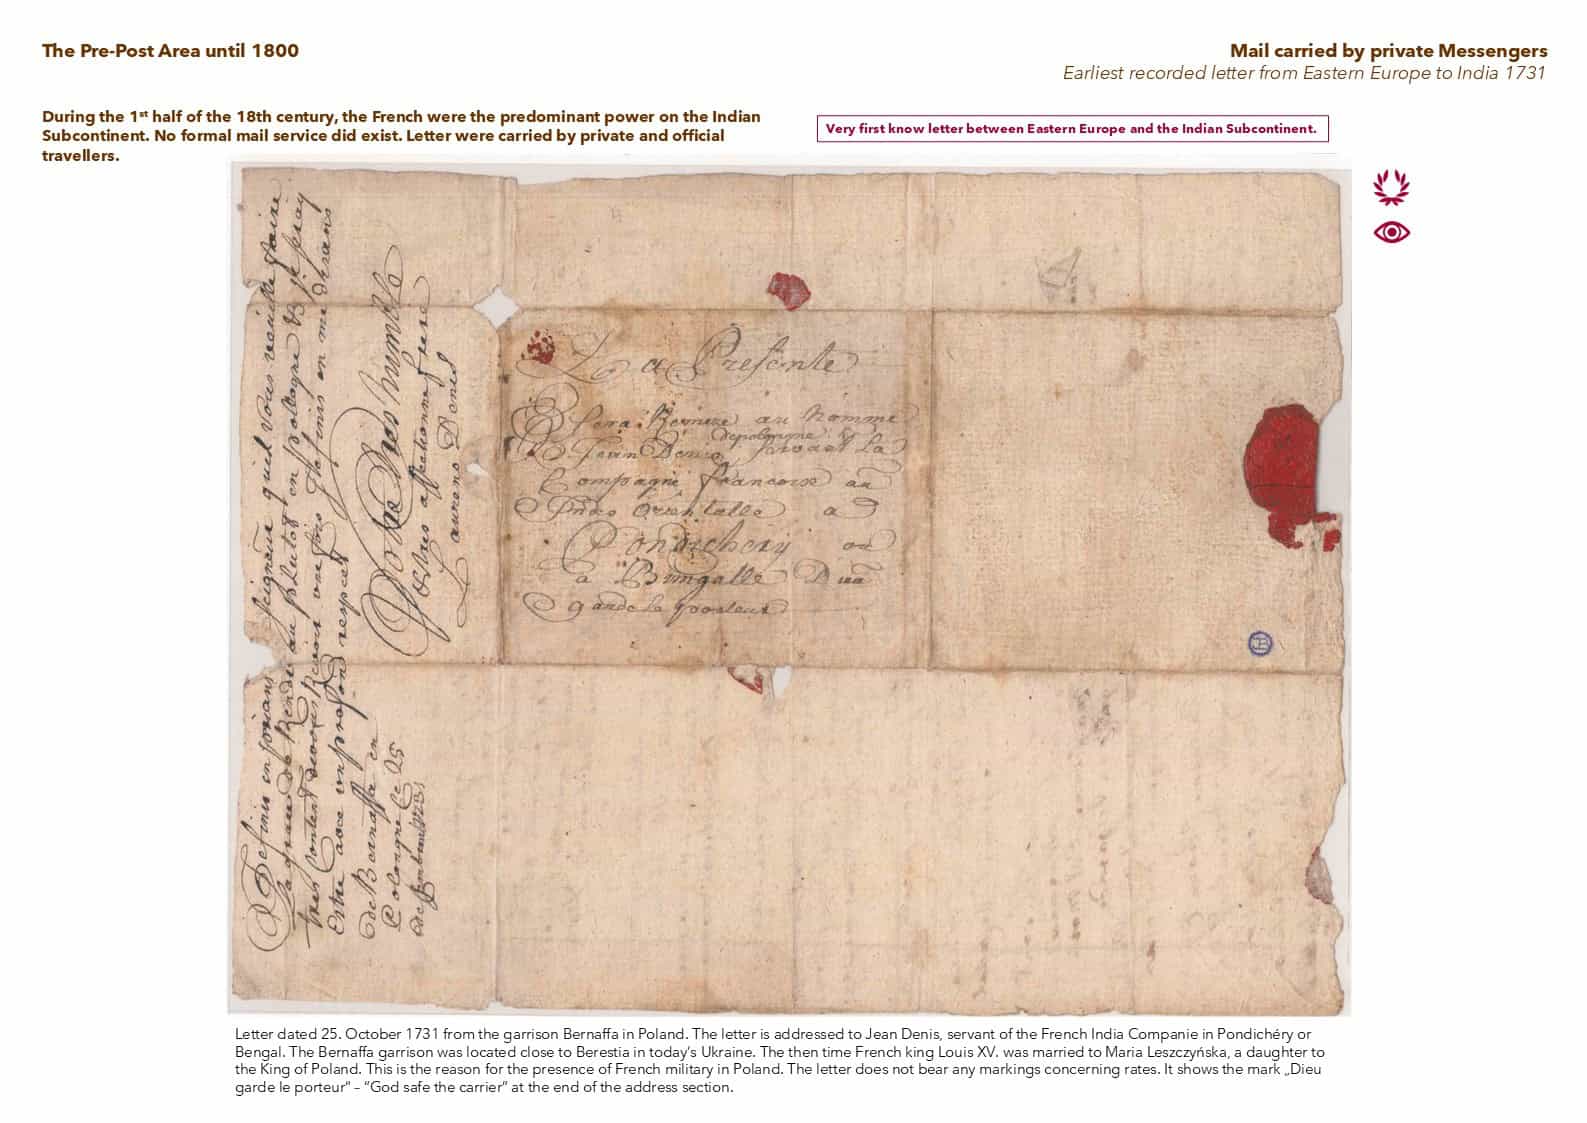 The Pre-Post Area until 1800
Mail carried by private Messengers
Earliest recorded letter from Eastern Europe to India 1731
During the 1st half of the 18th century, the French were the predominant power on the Indian
Subcontinent. No formal mail service did exist. Letter were carried by private and official
travellers.
Very first know letter between Eastern Europe and the Indian Subcontinent.
Definir en seigneur quil vous
Rendre au plutot en pollogne
Estre avec un profond respect
Votre tres humble
Vostres affectionne frere
Laurens Denis
de Bernaffa en
Pologne Le 25
1731
La Presente
sera Remise au Nomme
depologne
Jean Denis servant La
Compagni francoise au
Indes Orientalle a
Pondichery ou
a Bengalle Dieu
garde le porteur
Letter dated 25. October 1731 from the garrison Bernaffa in Poland. The letter is addressed to Jean Denis, servant of the French India Companie in Pondichéry or
Bengal. The Bernaffa garrison was located close to Berestia in today's Ukraine. The then time French king Louis XV. was married to Maria Leszczyńska, a daughter to
the King of Poland. This is the reason for the presence of French military in Poland. The letter does not bear any markings concerning rates. It shows the mark „Dieu
garde le porteur" – "God safe the carrier" at the end of the address section.